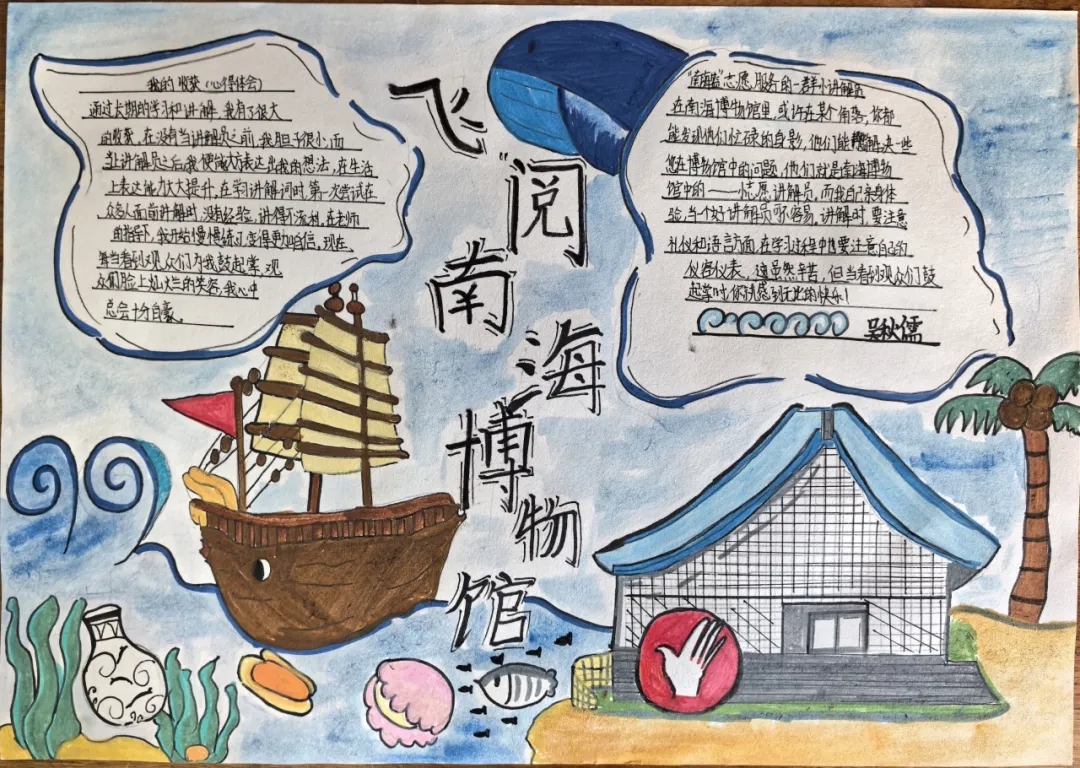 我的收获(心得体会)
通过长期的学习和讲解,我有了很大
的收获,在没有当讲解员之前,我胆子很小,而
当讲解员之后,我便能大方表达出我的想法,在生活
上表达能力大大提升,在学习讲解词时,第一次尝试在
众多人面前讲解时,没有经验,讲得不流利,在老师
的指导下,我开始慢慢练习,变得更加自信,现在,
每当看到观众们为我鼓起掌,观
众们脸上灿烂的笑容,我心中
总会十分自豪。
飞阅南海博物馆
志愿服务的一群小讲解员
在南海博物馆里,或许在某个角落,你都
能发现他们忙碌的身影,他们能解决一些
您在博物馆中的问题,他们就是南海博物
馆中的——小志愿讲解员,而我自己亲身体
验,当个好讲解员不容易,讲解时,要注意
礼仪和语言方面,在学习过程中也要注意自己的
仪容仪表,这虽然辛苦,但当看到观众们鼓
起掌时,你就感到无比的快乐!
吴秋儒